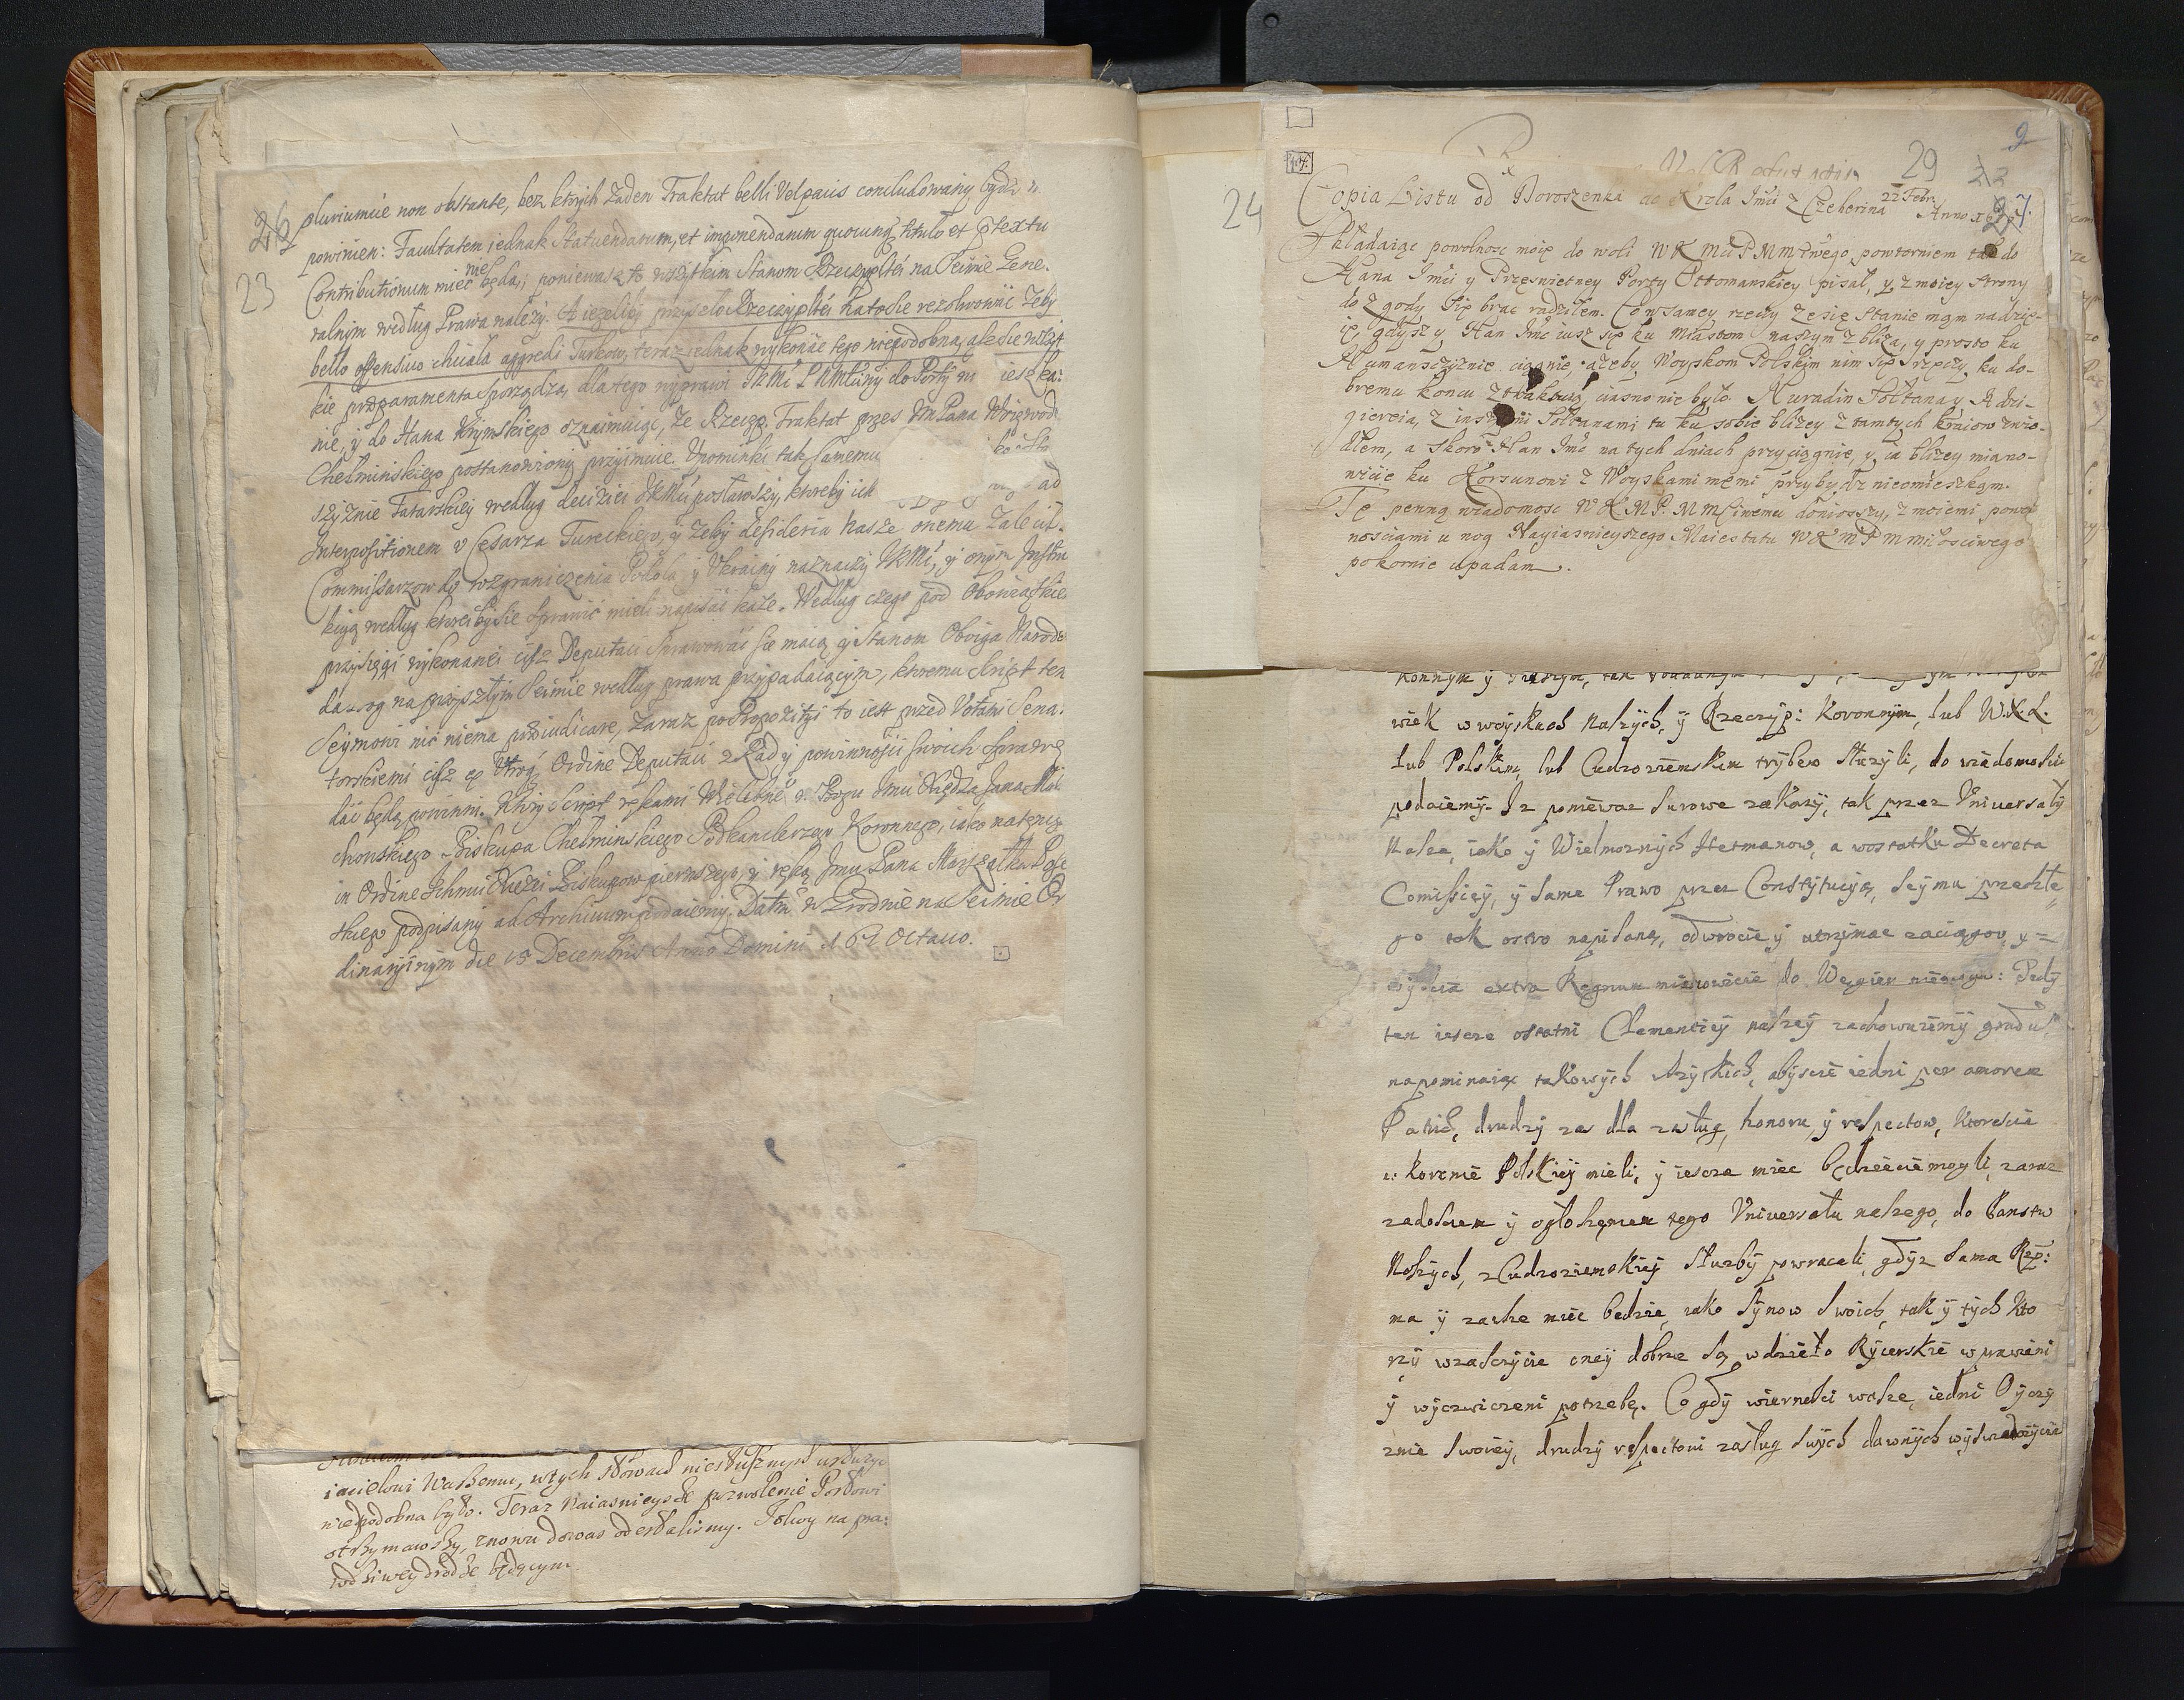 26
23
pluriumue non obstante, bez ktorych zaden Traktat belli vel pacis concludowany bydz
powinien: Facultatem iednak Statuendarum, et imponendarum quocunq titulo et ptextu
Contributionum mieć nie będą; poniewasz to wszytkim Stanom Rzeczyptéi na Seimie Gene-
ralnym według Prawa należy. A ieżeliby przyszło Rzeczyptéi na to sie rezolwowáć żeby
bello offensiuo chciała aggredi Turkow, teraz iednak wykonáć tego niepodobna, ale sie
kie przparamenta sporządzą, dla tego wyprawi JKMć do Porty
nie, y do Hana Krymskiego oznaimuiąc, że Rzeczp. Traktat przes Pana Woiewodę
Chełminskiego postanowiony przyimuie. Upominki tak samemu
szyznie Tatarskiey według deciziei JKMći postawszy, ktoreby ich ad
Interpositionem v Cesarza Tureckiego, y żeby desideria nasze onemu zalecił.
Commissarzow do rozgraniczenia Podola y Ukrainy naznaczy JKMć, y onym Instru
kcyą według ktoreiby sie sprawić mieli napisáć każe. Według czego pod obowiąskiem
przysięgi wykonanéi ciż Deputaci sprawowáć się maią y Stanom Oboiga Narodo
na przyszłym Seimie według prawa przypadaiącym, ktoremu skript ten
Seymowi nić niema pręiudicare, zaraz po Propozitiÿ to iest przed Votami Sena:
torskiemi ciż Ordine Deputaci z Rad y powinnosći swoich sprawę
dáć będą powinni. Ktory skript rękami Wielebne w Bogu Jmci Xiędza Jana Mała
chowskiego Biskupa Chełminskiego Podkanclerzego Koronnego, iako
in Ordine Ichmci Xięży Biskupow pierwszego, y ręką Jmci Pana Marszałka Pose
lskiego podpisany ad Archiuum podaiemy. Datm w Grodnie na Seimie Or
dinaryinym die 15 Decembris Anno Domini 1678 Octauo.
iacielowi Waszemu, w tych słowach niesłusznych urazyc
niepodobna było. Teraz naiasnieysze pozwolenie Posłowi
otrzymawszy, znowu do was odesłalismy. Jolwy na pra:
wdziwey drodze będącym.
24
29
23
2
27.
Copia Listu od Doroszenka do Krola Jmći z Czeherina 22 Febr. Anno
Składaiąc powolnosc moię do woli W K Mći P M Młwego, powtorniem tak do
Hana Jmći y Przeswietney Porty Ottomanskiey pisał, y z moiey strony
do zgody się brac radziłem. Co w samey rzeczy ze się stanie mam nadzie-
ię, gdysz y Han Jmć iusz się ku miastom naszym zbliza, y prosto ku
Humansczyznie ciągnie, azeby Woyskom Polskim nim się srzeczy ku do-
bremu koncu z traktowa ciasno nie było. Nuradin Sołtana y Adzi-
giereia, z inszemi Sołtanami tu ku sobie blizey z tamtych kraiow zwio-
dłem, a skoro Han Jmć na tych dniach przyciągnie, y ia blizey miano-
wicie ku Korsunowi z Woyskami memi przybydz nieomieszkam.
Tę pewną wiadomosc W K M P. M Mciwemu doniosszy, z moiemi powol
nosciami u nog Nayiasnieyszego Maiestatu W K M P M miłosciwego
pokornie upadam.
konnym y pieszym, tak
wiek w woyskach naszych, y Rzeczyp: Koronnym, lub W.X.L.
Lub Polskim, lub Cudzoziemskim trybem służyli, do wiadomosci
podaiemy. Iz poniewaz surowe zakazy, tak przez Vniuersały
Nasze, iako y Wielmoznych Hetmanow, a wostatku Decreta
Comissiey, y same Prawo przez Constytucyą, seymu przeszłe
go tak ostro napisaną, odwrocic y utrzymac zaciągow y
wyscia extra Regnum mianowicie do Węgier niemogą: Tedy
ten iescze ostatni Clementiey naszey zachowuiemy gradus
napominaiąc takowych wszytkich, abyscie iedni per amorem
Patriæ, drudzy zas dla zasług, honoru, y respectow, ktorescie
w koronie Polskiey mieli, y iescze miec będziecie mogli, zaraz
zadosciem y ogłoszęniem tego Vniuersału naszego, do Panstw
Naszych, z Cudzoziemskiey służby powracali, gdyz sama Rzp:
ma y zawsze miec będzie, iako Synow swoich, tak y tych kto
rzy wzasczycie oney dobrze są w dzieło Rycerskie wprawieni
y wycwiczeni potrzebę. Co gdy wiernosci wasze, iedni Oyczy
znie swoiey, drudzy respectowi zasług swych dawnych wyswiadczycie